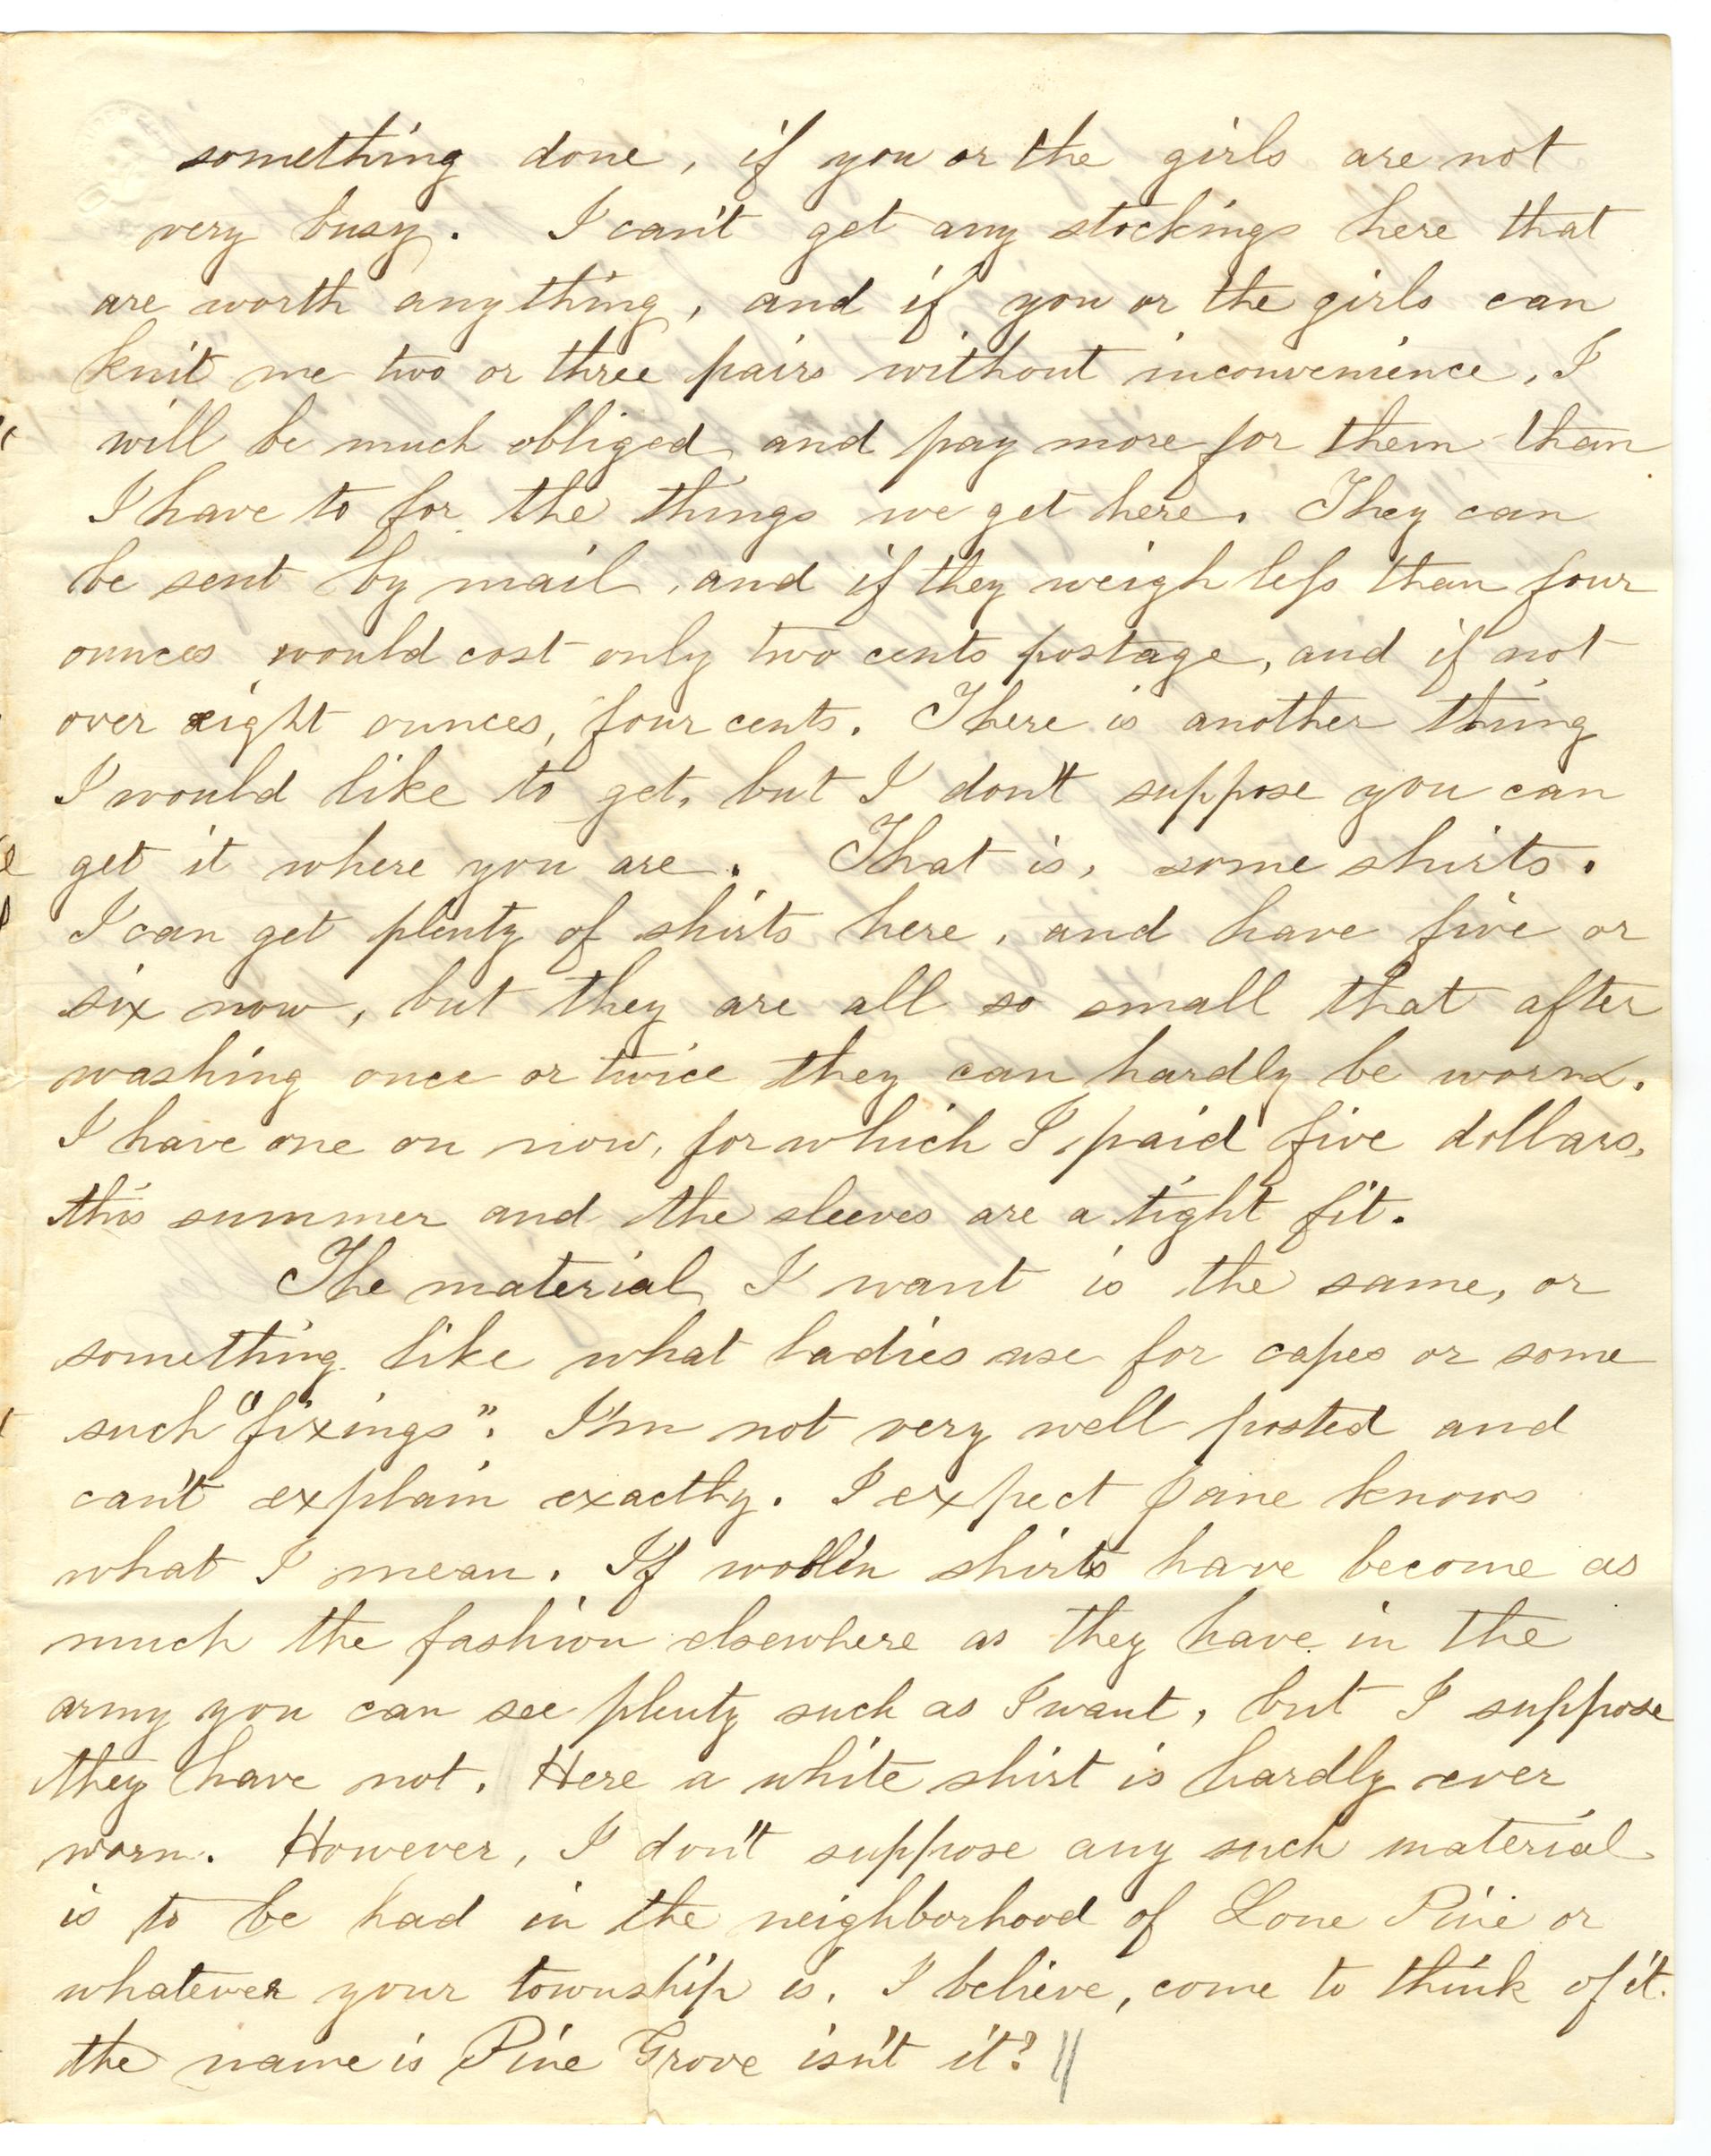 something done, if you or the girls are not
very busy. I can't get any stockings here that
are worth anything, and if you or the girls can
knit me two or three pairs without inconvenience, I
will be much obliged and pay more for them than
I have to for the things we get here. They can
be sent by mail, and if they weigh leſs than four
ounces would cost only two cents postage, and if not
over eight ounces, four cents. There is another thing
I would like to get, but I don't suppose you can
get it where you are. That is, some shirts.
I can get plenty of shirts here, and have five or
six now, but they are all so small that after
washing once or twice they can hardly be worn.
I have one on now, for which I paid five dollars,
this summer and the sleeves are a tight fit.
The material I want is the same, or
something like what ladies use for capes or some
such "fixings". I'm not very well posted and
can't explain exactly. I expect Jane knows
what I mean. If wollen shirts have become as
much the fashion elsewhere as they have in the
army you can see plenty such as I want, but I suppose
they have not. Here a white shirt is hardly ever
worn. However, I don't suppose any such material
is to be had in the neighborhood of Lone Pine or
whatever your township is. I believe, come to think of it.
the name is Pine Grove isn't it? //